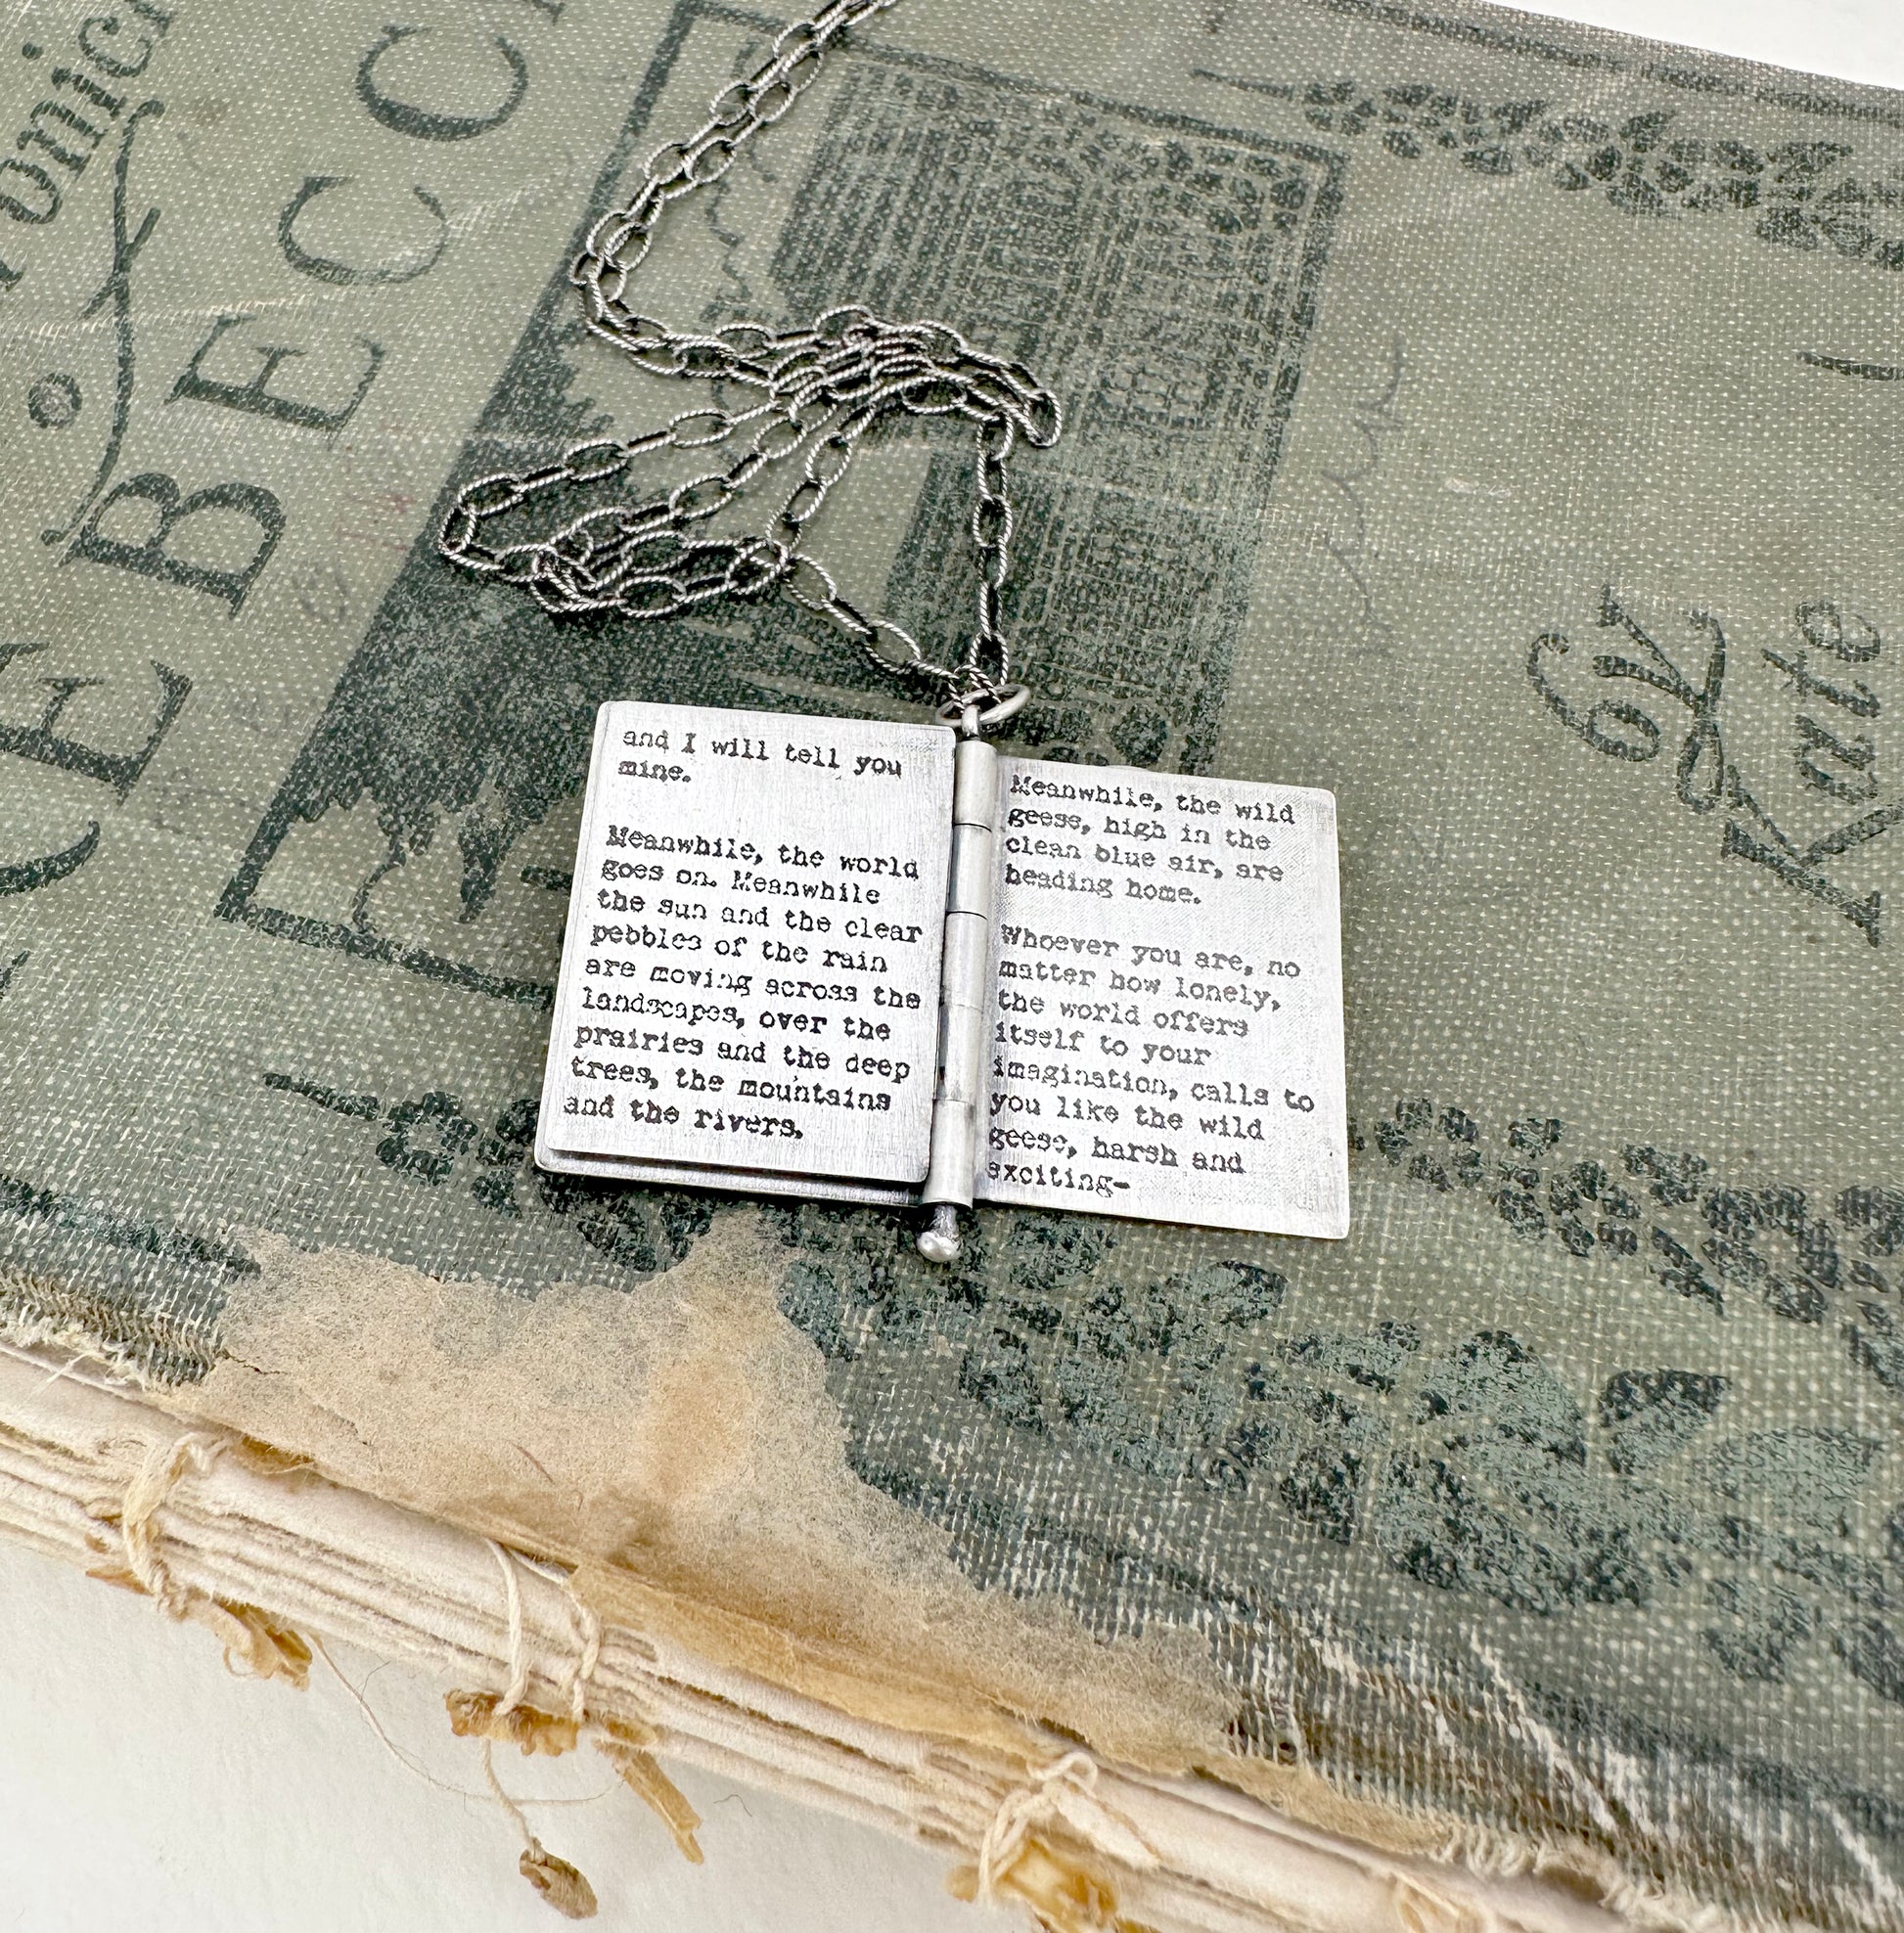 onicl
REBECC
by
Kate
and I will tell you
mine.
Meanwhile, the world
goes on. Meanwhile
the sun and the clear
pebbles of the rain
are moving across the
landscapes, over the
prairies and the deep
trees, the mountains
and the rivers.
Meanwhile, the wild
geese, high in the
clean blue air, are
heading home.
Whoever you are, no
matter how lonely,
the world offers
itself to your
imagination, calls to
you like the wild
geese, harsh and
exciting-